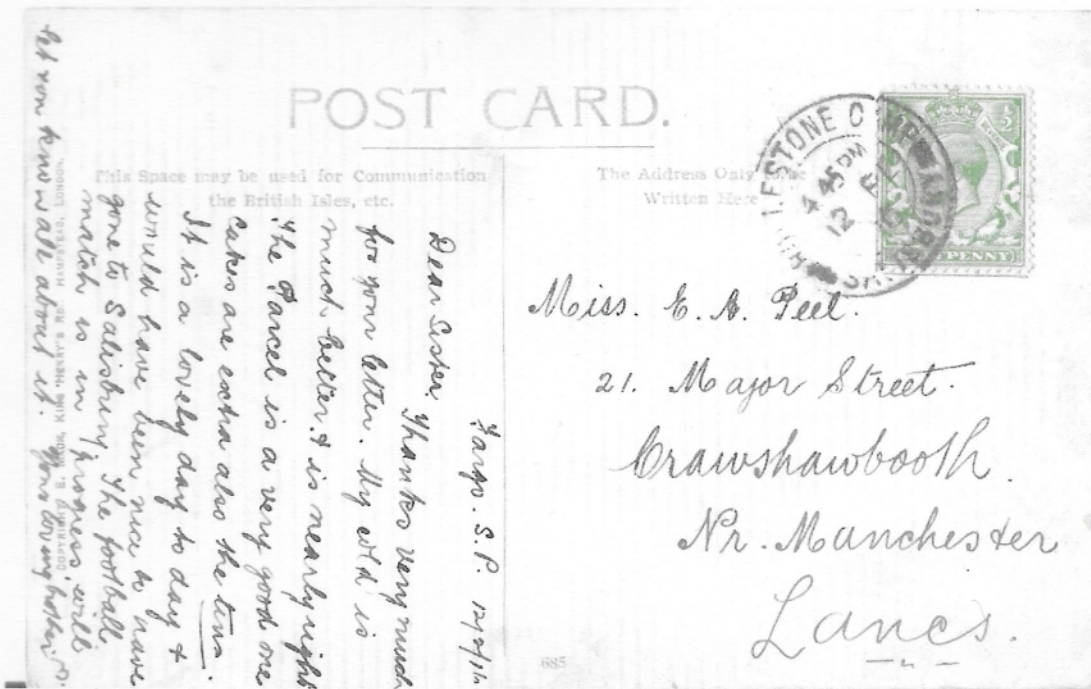 POST CARD.
This Space may be used for Communication
the British Isles, etc.
The Address Only to be
Written Here
LFSTONE CAMP
4 45 PM
12
PENNY
Miss. E. A. Peel.
21. Major Street.
Crawshawbooth.
Nr. Manchester
Lancs.
Fargo. S.P. 12/2/16
Dear Sister. Thanks very much
for your letter. My cold is
much better & is nearly right
The Parcel is a very good one
Cakes are extra also the tins.
It is a lovely day to day &
would have been nice to have
gone to Salisbury. The football
match is in progress will
let you know all about it. Your loving brother
KING HENRY'S RD. HAMPSTEAD, LONDON.
685